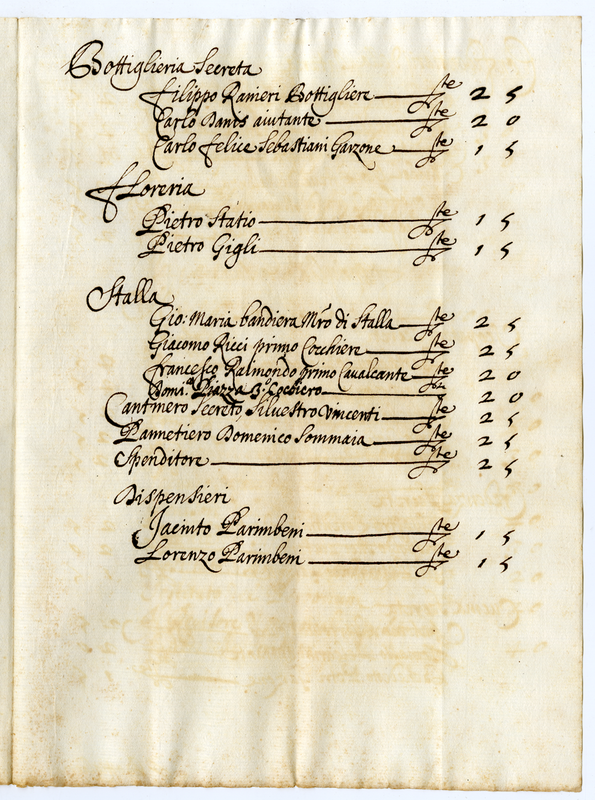 Bottiglieria Secreta
Filippo Ranieri Bottigliere ste 25
Carlo Danis aiutante ste 20
Carlo felice Sebastiani Garzone ste 15
floreria
Pietro Statio ste 15
Pietro Gigli ste 15
Stalla
Gio: Maria bandiera Mro di Stalla ste 25
Giacomo Ricci primo Cocchiere ste 25
francesco Raimondo primo Cavalcante ste 20
Domi.co Piazza Cochiero 20
Cantinero Secreto Siluestro Vincenti ste 25
Pannetiero Domenico Sommaia ste 25
Spenditore ste 25
Dispensieri
Jacinto Parimbeni ste 15
Lorenzo Parimbeni ste 15